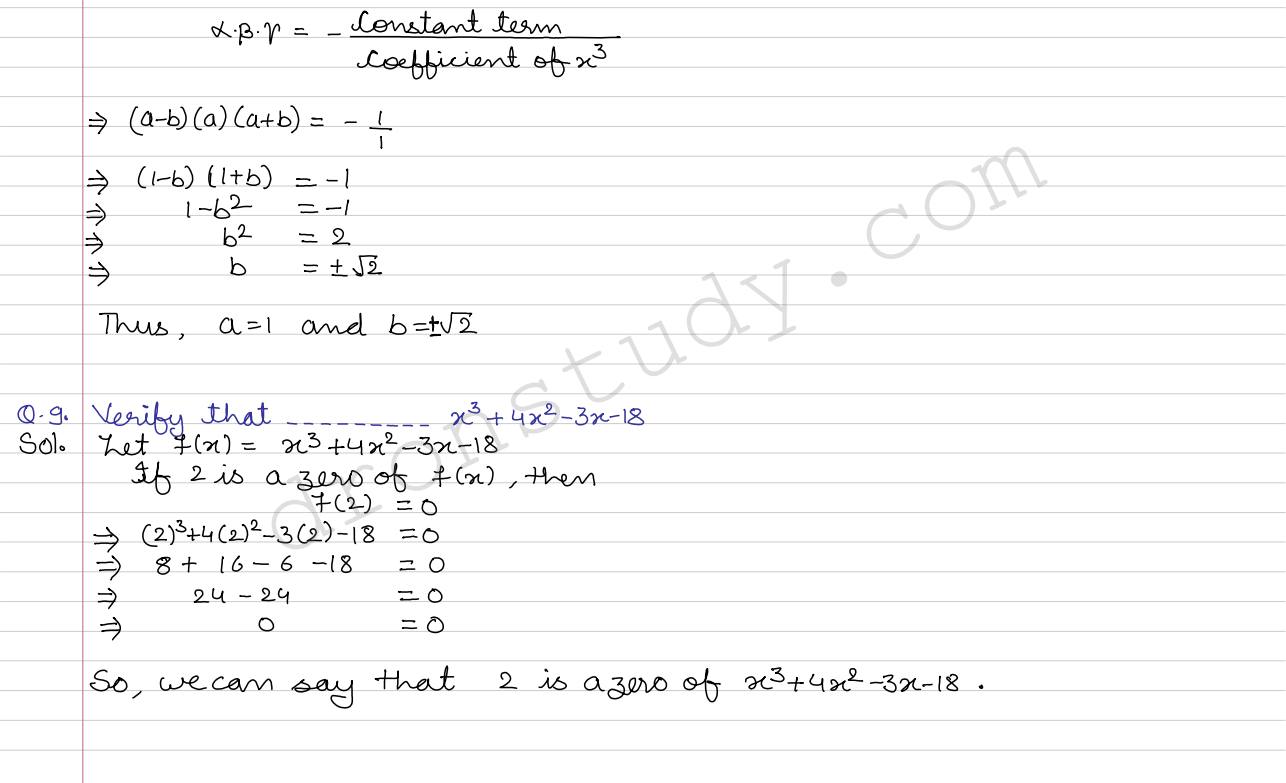 α.β.γ = - Constant term / Coefficient of x³
⇒ (a-b)(a)(a+b) = - 1/1
⇒ (1-b)(1+b) = -1
⇒ 1-b² = -1
⇒ b² = 2
⇒ b = ±√2
Thus, a=1 and b=±√2
Q.9. Verify that --------- x³+4x²-3x-18
Sol. Let f(x) = x³+4x²-3x-18
If 2 is a zero of f(x), then
f(2) = 0
⇒ (2)³+4(2)²-3(2)-18 = 0
⇒ 8+ 16-6-18 = 0
⇒ 24-24 = 0
⇒ 0 = 0
So, we can say that 2 is a zero of x³+4x²-3x-18.
dronstudy.com